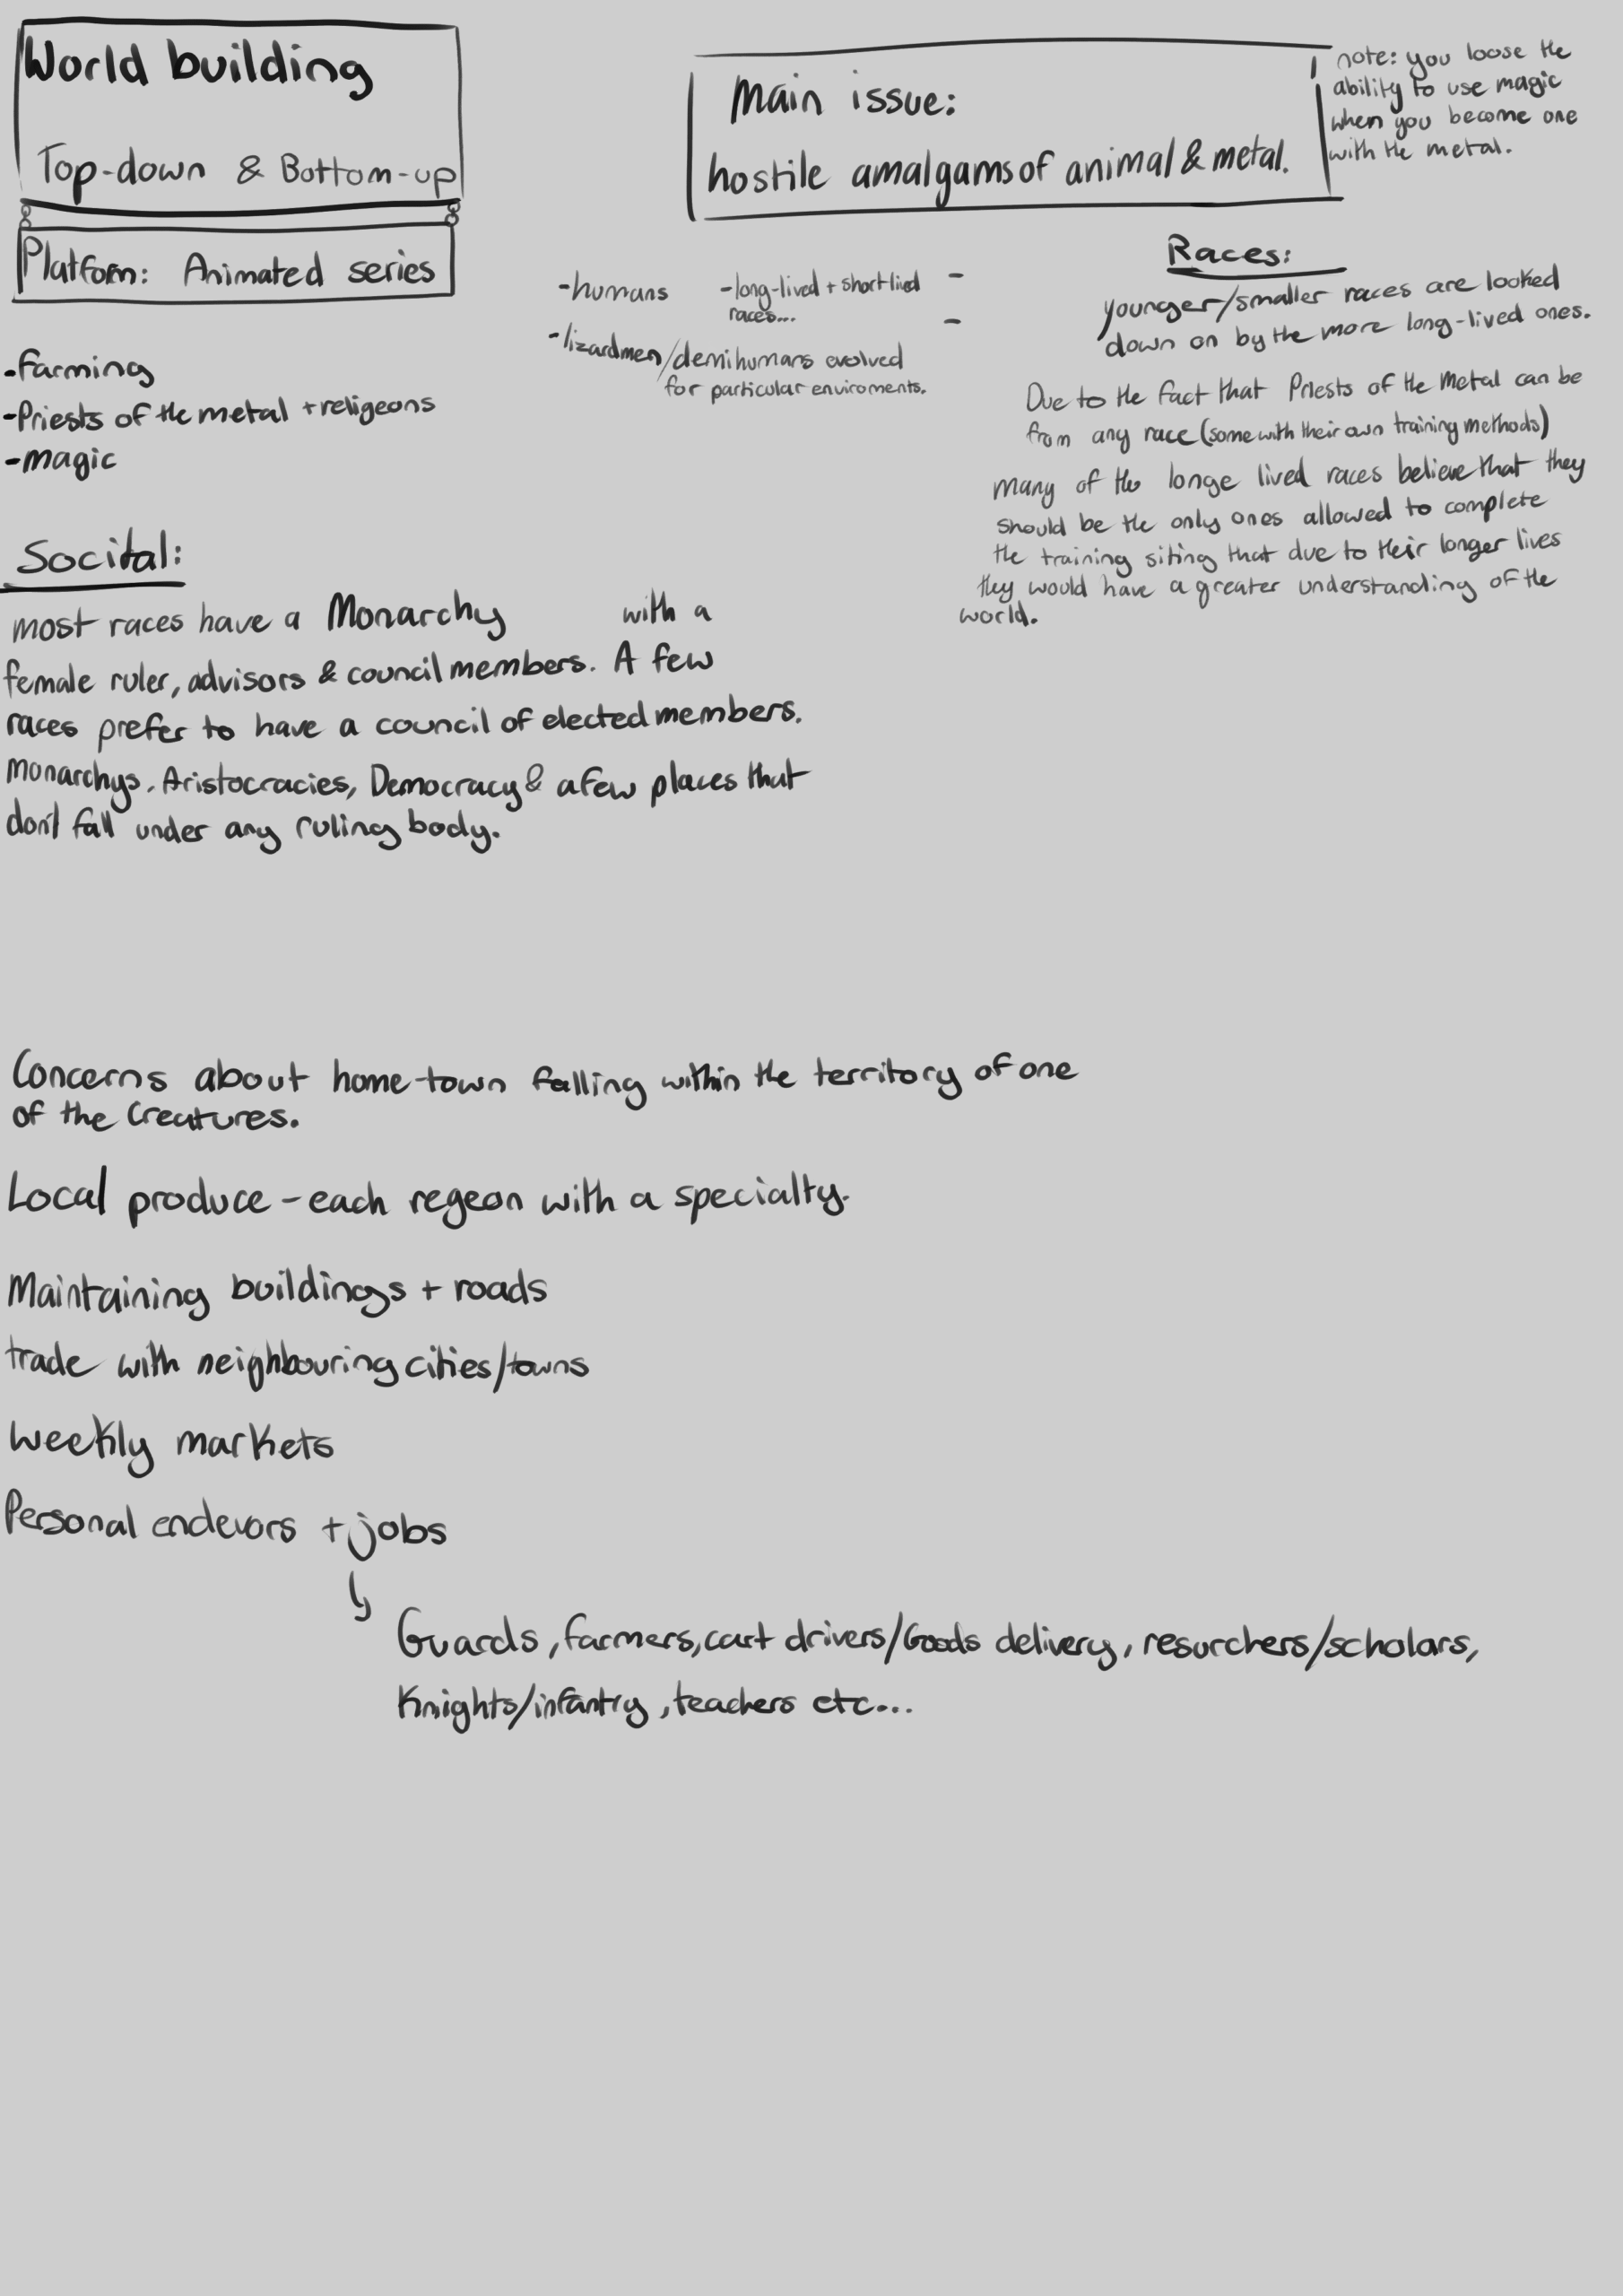 World building
Top-down & Bottom-up
Platform: Animated series
Main issue:
hostile amalgams of animal & metal.
note: you loose the
ability to use magic
when you become one
with the metal.
-farming
-Priests of the metal + religeons
-magic
-humans
-lizardmen/demihumans evolved
for particular enviroments.
-long-lived + short lived
races...
-
-
Races:
younger/smaller races are looked
down on by the more long-lived ones.
Due to the fact that Priests of the Metal can be
from any race (some with their own training methods)
many of the longe lived races believe that they
should be the only ones allowed to complete
the training siting that due to their longer lives
they would have a greater understanding of the
world.
Socital:
most races have a Monarchy with a
female ruler, advisors & council members. A few
races prefer to have a council of elected members.
Monarchys, Aristocracies, Democracy & a few places that
don't fall under any ruling body.
Concerns about home-town falling within the territory of one
of the creatures.
Local produce - each regeon with a specialty.
Maintaining buildings + roads
trade with neighbouring cities/towns
weekly markets
Personal endevors + jobs
Guards, farmers, cart drivers/Goods delivery, resurchers/scholars,
Knights/infantry, teachers etc...